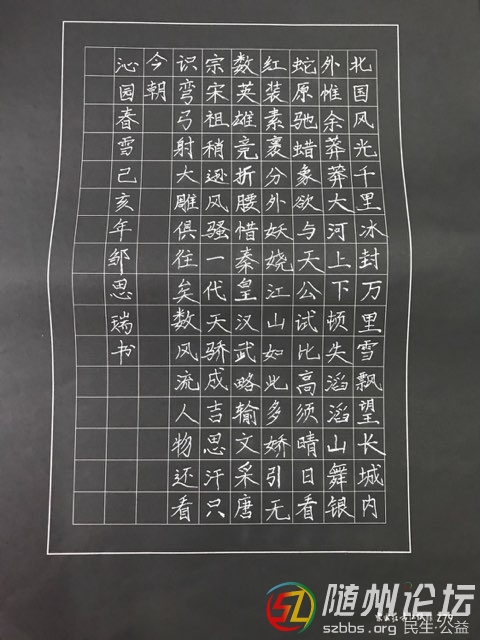 北国风光千里冰封万里雪飘望长城内
外惟余莽莽大河上下顿失滔滔山舞银
蛇原驰蜡象欲与天公试比高须晴日看
红装素裹分外妖娆江山如此多娇引无
数英雄竞折腰惜秦皇汉武略输文采唐
宗宋祖稍逊风骚一代天骄成吉思汗只
识弯弓射大雕俱往矣数风流人物还看
今朝
沁园春雪己亥年邹思瑞书
随州论坛
szbbs.org 民生·公益